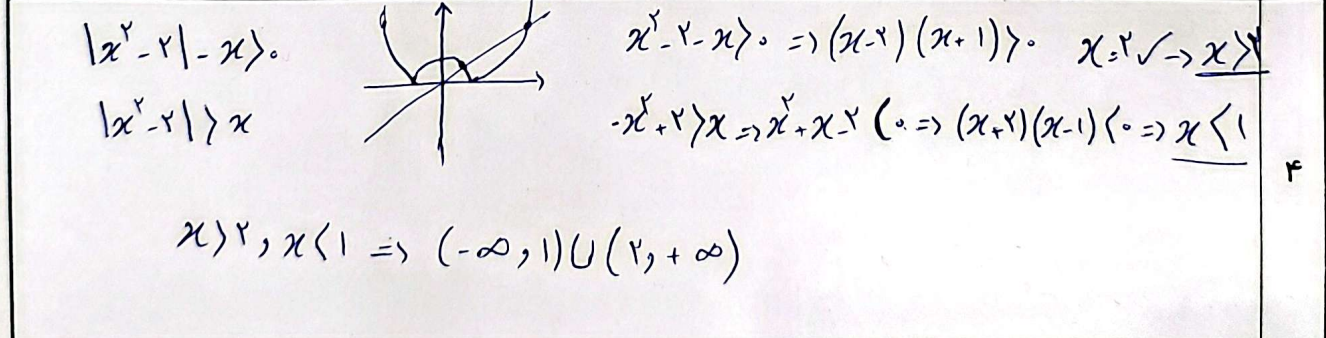 |x²-۲|-x>۰
|x²-۲|>x
x²-۲-x>۰ => (x-۲)(x+۱)>۰ x=۲ ✓ -> x>۲
-x²+۲>x => x²+x-۲<۰ => (x+۲)(x-۱)<۰ => x<۱
۴
x>۲, x<۱ => (-∞, ۱)∪(۲, +∞)